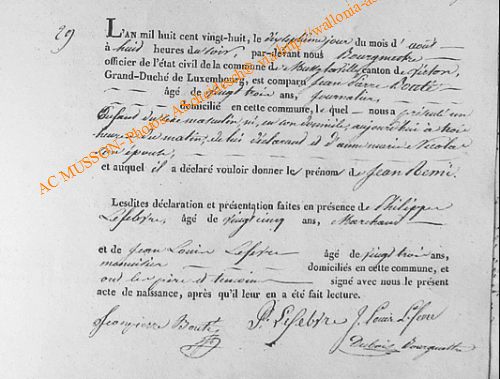 29
L'AN mil huit cent vingt-huit, le dixseptième jour du mois d' août
à huit heures du soir, par-devant nous Bourgmestre
officier de l'état civil de la commune de canton de Virton,
Grand-Duché de Luxembourg, est comparu Jean Pierre Bonté
âgé de vingt trois ans, journalier,
domicilié en cette commune, le quel nous a présenté un
Enfant du sexe masculin, né, en son domicile, aujourd'hui à trois
heures du matin, de lui déclarant et d'anne marie Nicolas
son épouse,
et auquel il a déclaré vouloir donner les prénoms de Jean Remi.
Lesdites déclaration et présentation faites en présence de Philippe
Lefebvre, âgé de vingt cinq ans, Marchand
et de Jean Louis Lefevre âgé de vingt trois ans,
domiciliés en cette commune, et
ont les père et témoins signé avec nous le présent
acte de naissance, après qu'il leur en a été fait lecture.
Jeanpierre Bonté Ph Lefebvre J. Louis Lefevre
Dubois Bourgmestre
AC MUSSON- Photos